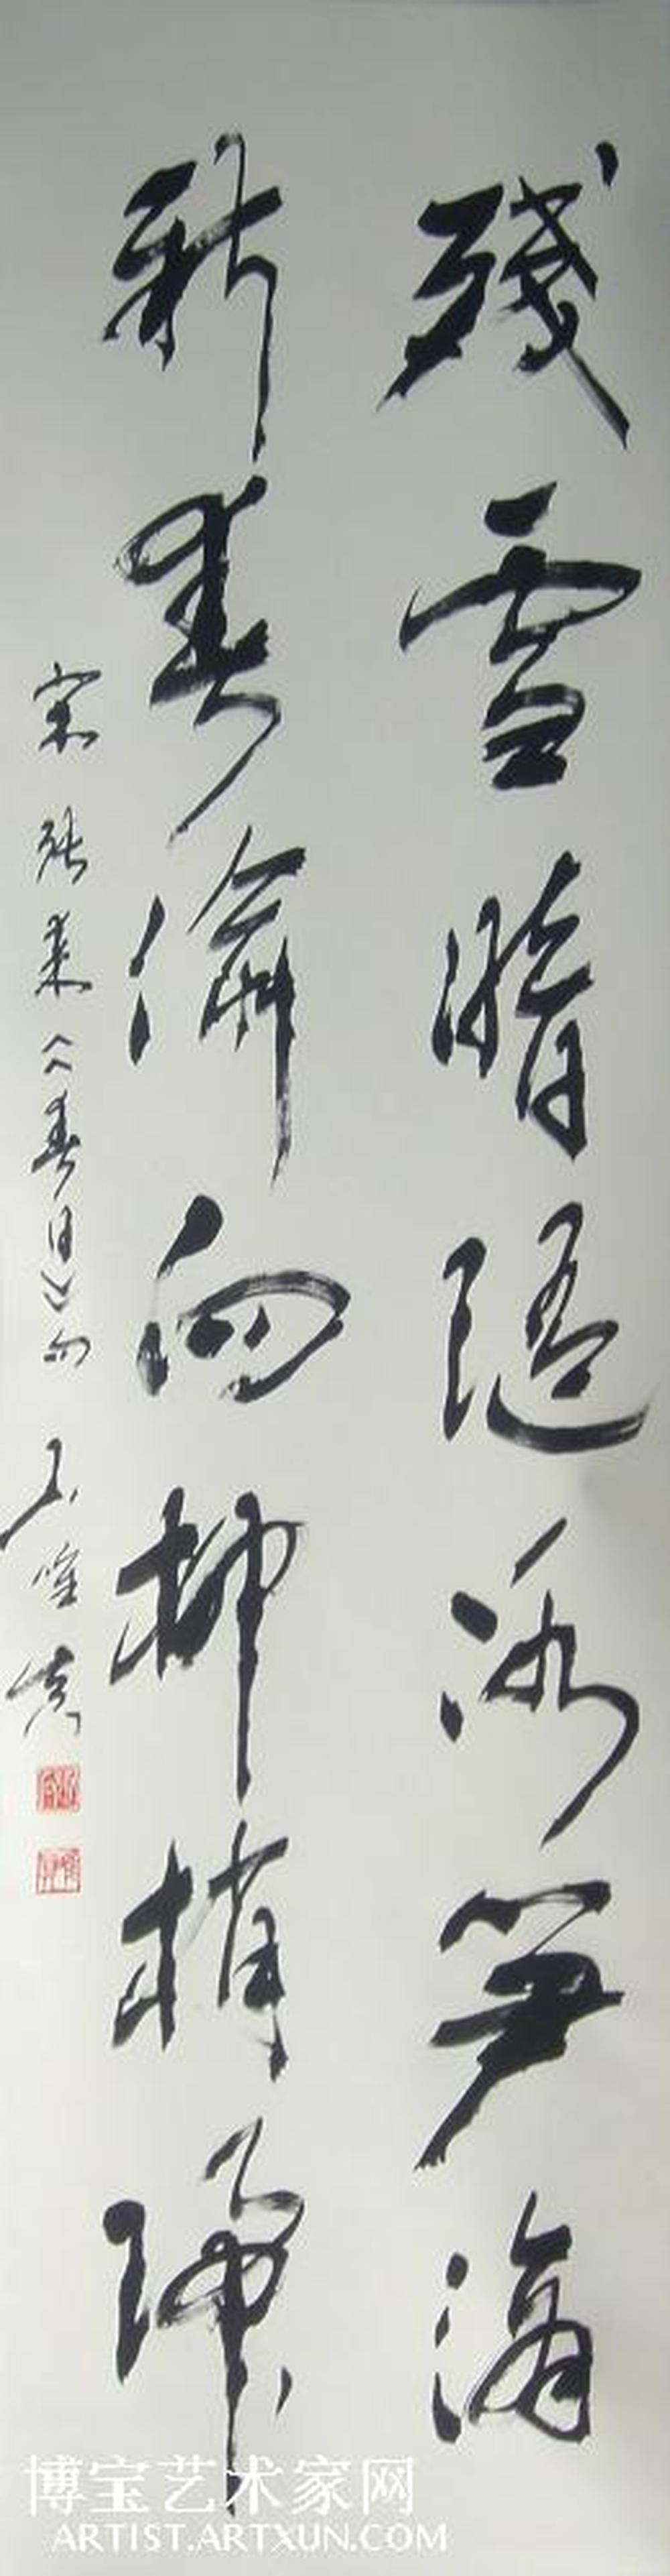 殘雪暗隨冰筍滴
新春偷向柳梢歸
宋張耒《春日》句
博宝艺术家网
ARTIST.ARTXUN.COM